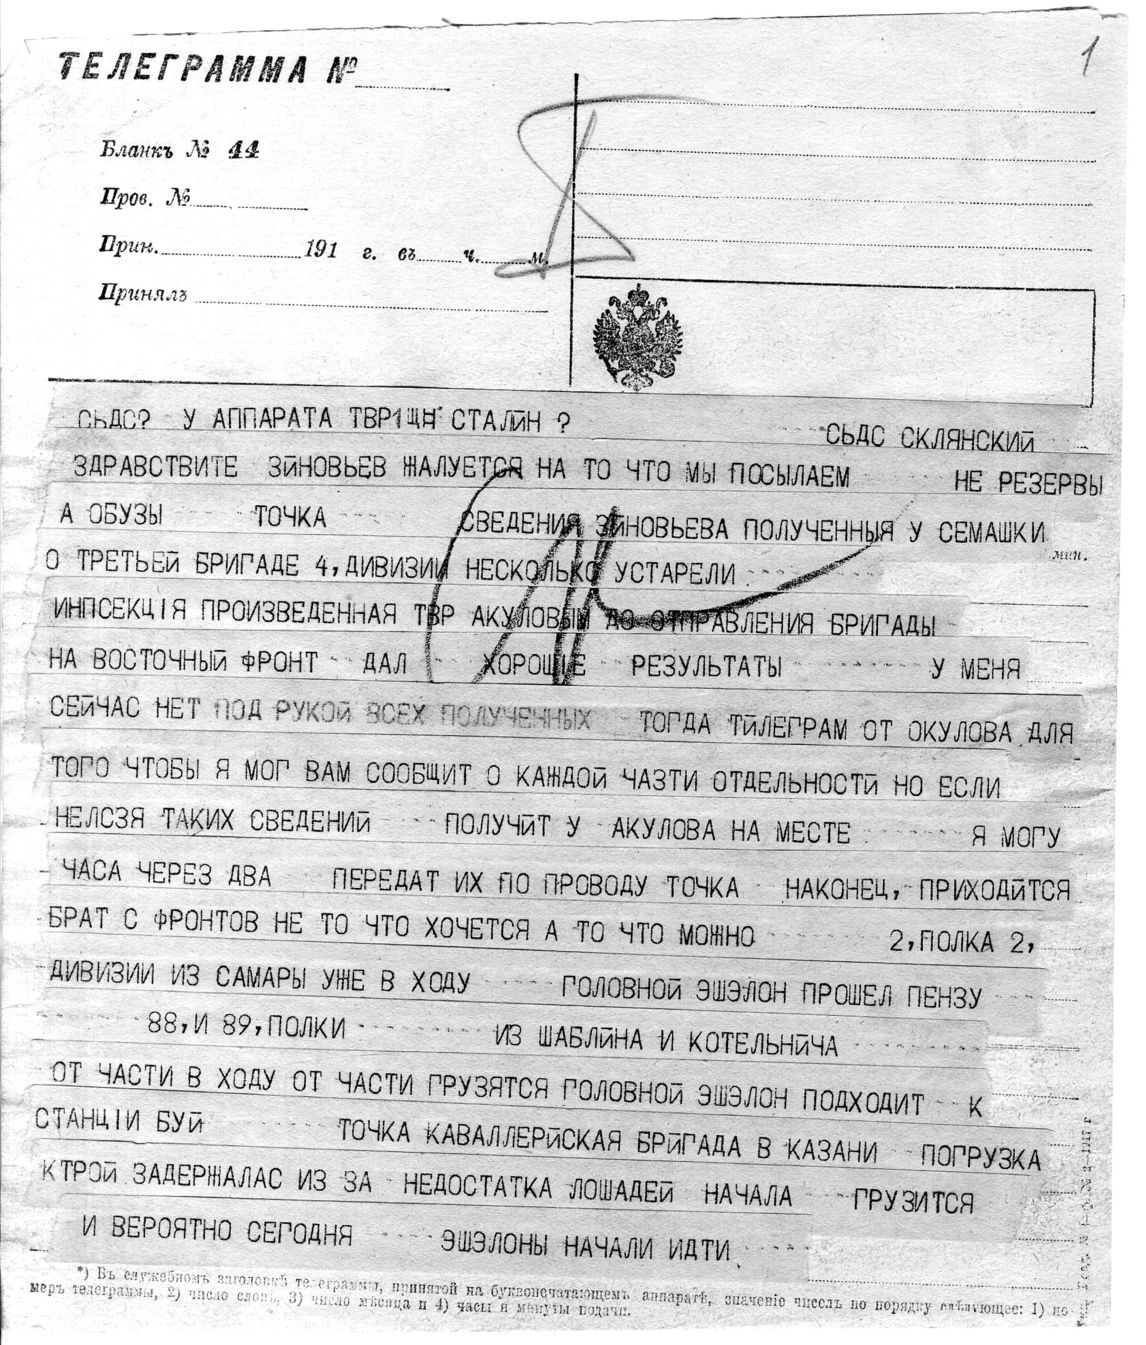 1
ТЕЛЕГРАММА №
Бланкъ № 44
Пров. №
Прин. 191 г. въ ч. м.
Принялъ
СЬДС? У АППАРАТА СТАЛЙН ? СЬДС СКЛЯНСКИЙ
ЗДРАВСТВИТЕ ЗЙНОВЬЕВ ЖАЛУЕТСЯ НА ТО ЧТО МЫ ПОСЫЛАЕМ НЕ РЕЗЕРВЫ
А ОБУЗЫ ТОЧКА СВЕДЕНИЯ ЗЙНОВЬЕВА ПОЛУЧЕННЫЯ У СЕМАШКИ
мин.
О ТРЕТЬЕЙ БРИГАДЕ 4, ДИВИЗИИ НЕСКОЛЬКО УСТАРЕЛИ
ИНПСЕКЦІЯ ПРОИЗВЕДЕННАЯ ТВР АКУЛОВЫМ ДО ОТПРАВЛЕНИЯ БРИГАДЫ
НА ВОСТОЧНЫЙ ФРОНТ ДАЛ ХОРОШИЕ РЕЗУЛЬТАТЫ У МЕНЯ
СЕЙЧАС НЕТ ПОД РУКОЙ ВСЕХ ПОЛУЧЕННЫХ ТОГДА ТЙЛЕГРАМ ОТ ОКУЛОВА ДЛЯ
ТОГО ЧТОБЫ Я МОГ ВАМ СООБЩИТ О КАЖДОЙ ЧАЗТИ ОТДЕЛЬНОСТЙ НО ЕСЛИ
НЕЛСЗЯ ТАКИХ СВЕДЕНИЙ ПОЛУЧЙТ У АКУЛОВА НА МЕСТЕ Я МОГУ
ЧАСА ЧЕРЕЗ ДВА ПЕРЕДАТ ИХ ПО ПРОВОДУ ТОЧКА НАКОНЕЦ, ПРИХОДЙТСЯ
БРАТ С ФРОНТОВ НЕ ТО ЧТО ХОЧЕТСЯ А ТО ЧТО МОЖНО 2, ПОЛКА 2,
ДИВИЗИИ ИЗ САМАРЫ УЖЕ В ХОДУ ГОЛОВНОЙ ЭШЭЛОН ПРОШЕЛ ПЕНЗУ
88, И 89, ПОЛКИ ИЗ ШАБЛЙНА И КОТЕЛЬНЙЧА
ОТ ЧАСТИ В ХОДУ ОТ ЧАСТИ ГРУЗЯТСЯ ГОЛОВНОЙ ЭШЭЛОН ПОДХОДИТ К
СТАНЦІИ БУЙ ТОЧКА КАВАЛЛЕРЙСКАЯ БРЙГАДА В КАЗАНИ ПОГРУЗКА
КТРОЙ ЗАДЕРЖАЛАС ИЗ ЗА НЕДОСТАТКА ЛОШАДЕЙ НАЧАЛА ГРУЗИТСЯ
И ВЕРОЯТНО СЕГОДНЯ ЭШЭЛОНЫ НАЧАЛИ ИДТИ
*) Въ служебномъ заголовкѣ телеграммы, принятой на буквопечатающемъ аппаратѣ, значеніе чиселъ по порядку слѣдующее: 1) но
меръ телеграммы, 2) число словъ, 3) число мѣсяца и 4) часы и минуты подачи.